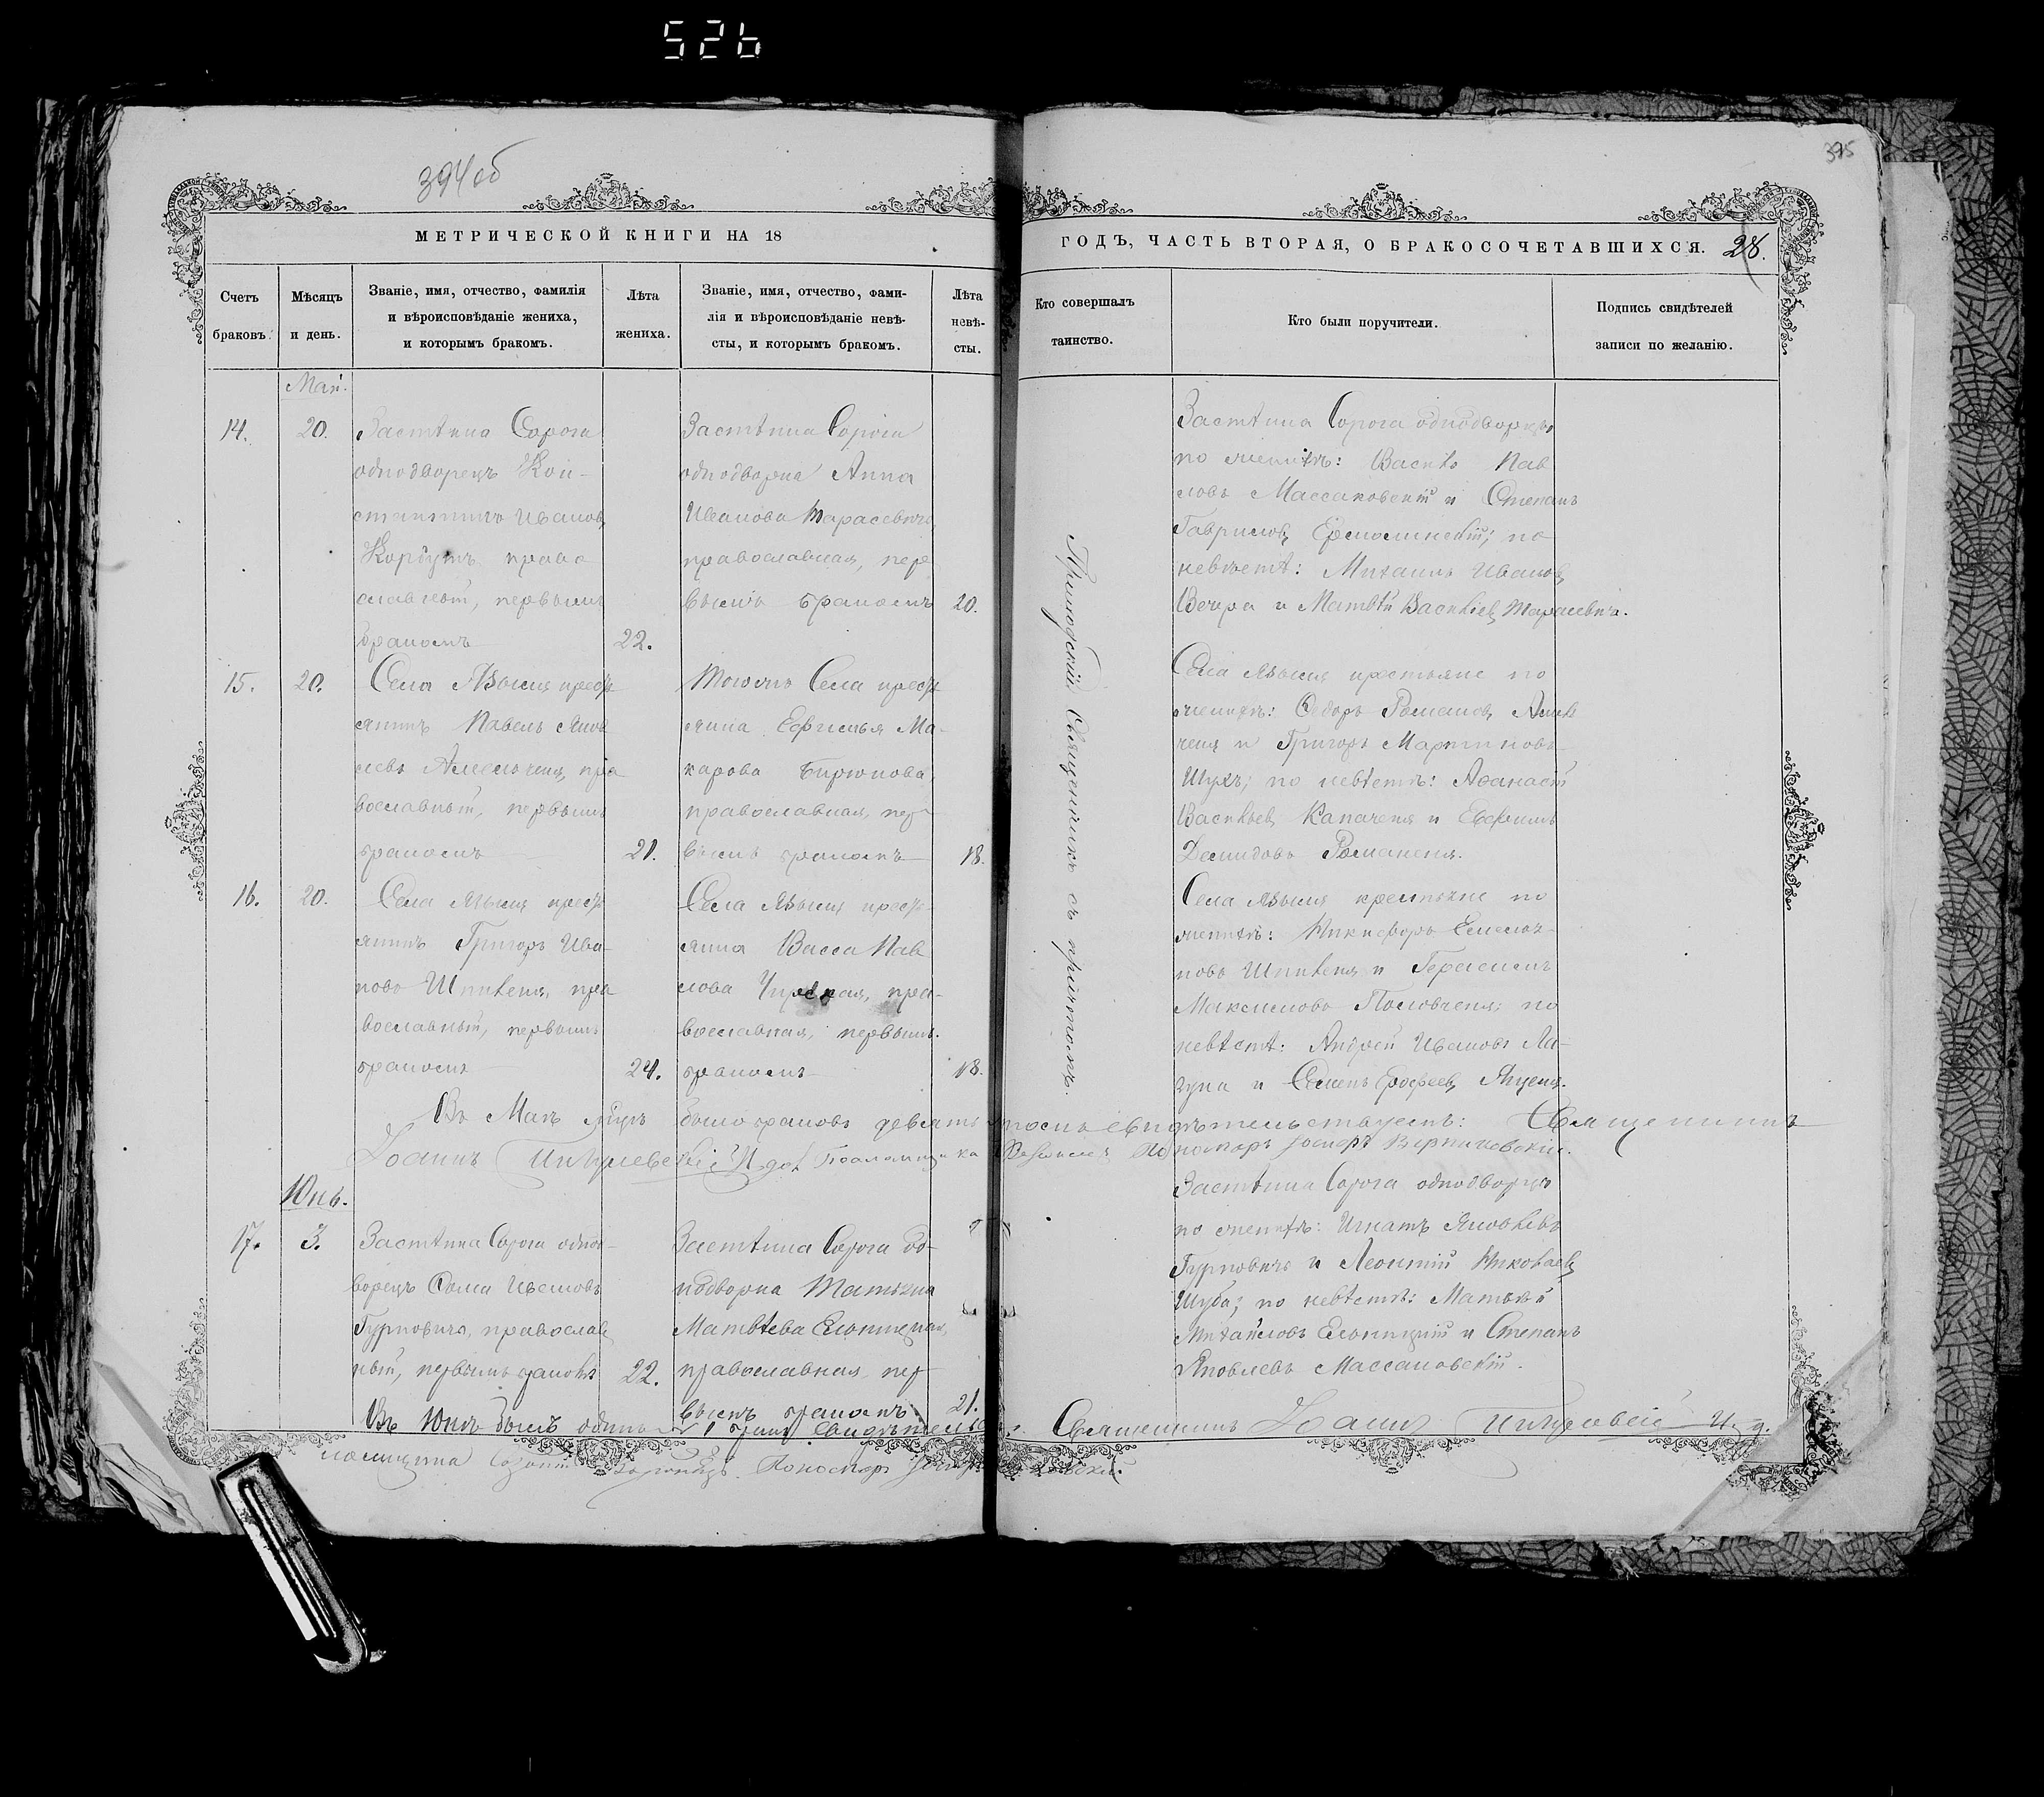 526
394 об
395
МЕТРИЧЕСКОЙ КНИГИ НА 18
ГОДЪ, ЧАСТЬ ВТОРАЯ, О БРАКОСОЧЕТАВШИХСЯ. 28.
Счетъ
браковъ.
Мѣсяцъ
и день.
Званіе, имя, отчество, фамилія
и вѣроисповѣданіе жениха,
и которымъ бракомъ.
Лѣта
жениха.
Званіе, имя, отчество, фами-
лія и вѣроисповѣданіе невѣ-
сты, и которымъ бракомъ.
Лѣта
невѣ-
сты.
Кто совершалъ
таинство.
Кто были поручители.
Подпись свидѣтелей
записи по желанію.
Май.
14.
20.
Застѣнка Сорога
однодворецъ Кон-
стантинъ Иванов
Корбутъ, право
славный, первымъ
бракомъ
22.
Застѣнка Сорога
однодворка Анна
Иванова Тарасевичъ,
православная, пер
вымъ бракомъ
20.
Приходскій Священникъ съ причтомъ.
Застѣнка Сорога однодворцы
по женихѣ: Василь Пав
ловъ Массаковскій и Степанъ
Гаврилов Ермолинскій; по
невѣстѣ: Михаилъ Иванов
Вечера и Матвѣй Васильев Тарасевичъ.
15.
20.
Села Языля крестья
нинъ Павелъ Яков
левъ Амельченя, пра
вославный, первымъ
бракомъ
21.
Тогожъ Села кресть
янка Ефимья Ма-
карова Бирюкова,
православная, пер
вымъ бракомъ
18.
Села Языля крестьяне по
женихѣ: Ѳедоръ Романов Амель
ченя и Григоръ Мартиновъ
Шукъ; по невѣстѣ: Аѳанасій
Васильев Капаченя и Евфимъ
Демидовъ Романеня.
16.
20.
Села Языля кресть
янинъ Григоръ Ива-
новъ Шпилевя, пра
вославный, первымъ
бракомъ
24.
Села Языля кресть-
янка Васса Пав
лова, пра-
вославная, первымъ
бракомъ
18.
Села Языля крестьяне по
женихѣ: Никифоръ Емелья-
новъ и Герасимъ
Максимовъ; по
невѣстѣ: Андрей Ивановъ Ла-
гуна и Семенъ Ерофеев Януеня.
Въ Маѣ было браковъ девять свидѣтельствуемъ: Священникъ
Іоаннъ И. д. Псаломщика Пономарь Іосифъ
Юнь.
17.
3.
Застѣнка Сорога однод-
ворецъ Ѳома Ивановъ
Гурновичъ, православ
ный, первымъ бракомъ
22.
Застѣнка Сорога од-
нодворка Татьяна
Матвѣева Ельницкая,
православная, пер
вымъ бракомъ
21.
Застѣнка Сорога однодворцы
по женихѣ: Игнатъ Яковлевъ
Гурновичъ и Леонтій Николаев
Шуба; по невѣстѣ: Матвѣй
Михайловъ Ельницкій и Степанъ
Яковлевъ Массаковскій.
Въ Юнѣ былъ одинъ 1 бракъ
Священникъ Іоаннъ И. д.
Пономарь